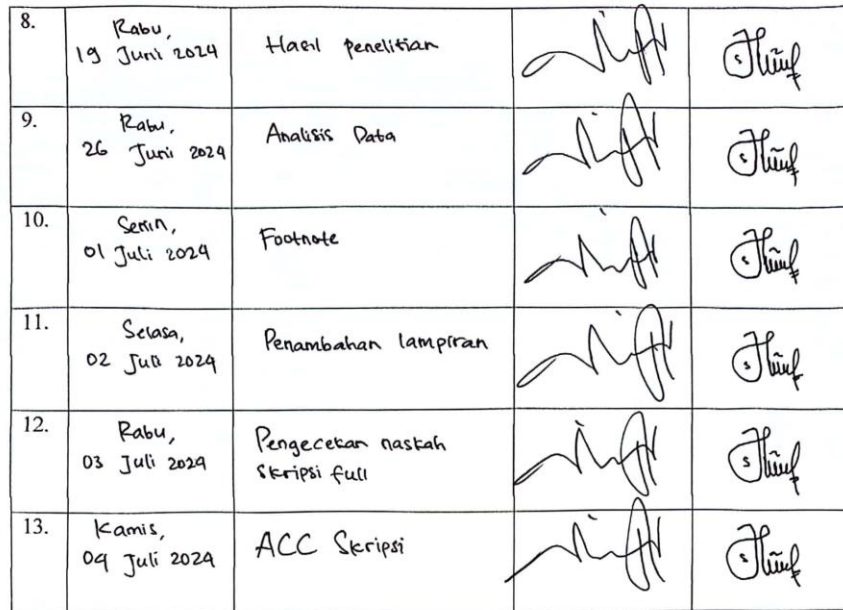 8.
Rabu,
19 Juni 2024
Hasil penelitian
9.
Rabu,
26 Juni 2024
Analisis Data
10.
Senin,
01 Juli 2024
Footnote
11.
Selasa,
02 Juli 2024
Penambahan lampiran
12.
Rabu,
03 Juli 2024
Pengecekan naskah
Skripsi full
13.
Kamis,
04 Juli 2024
ACC Skripsi